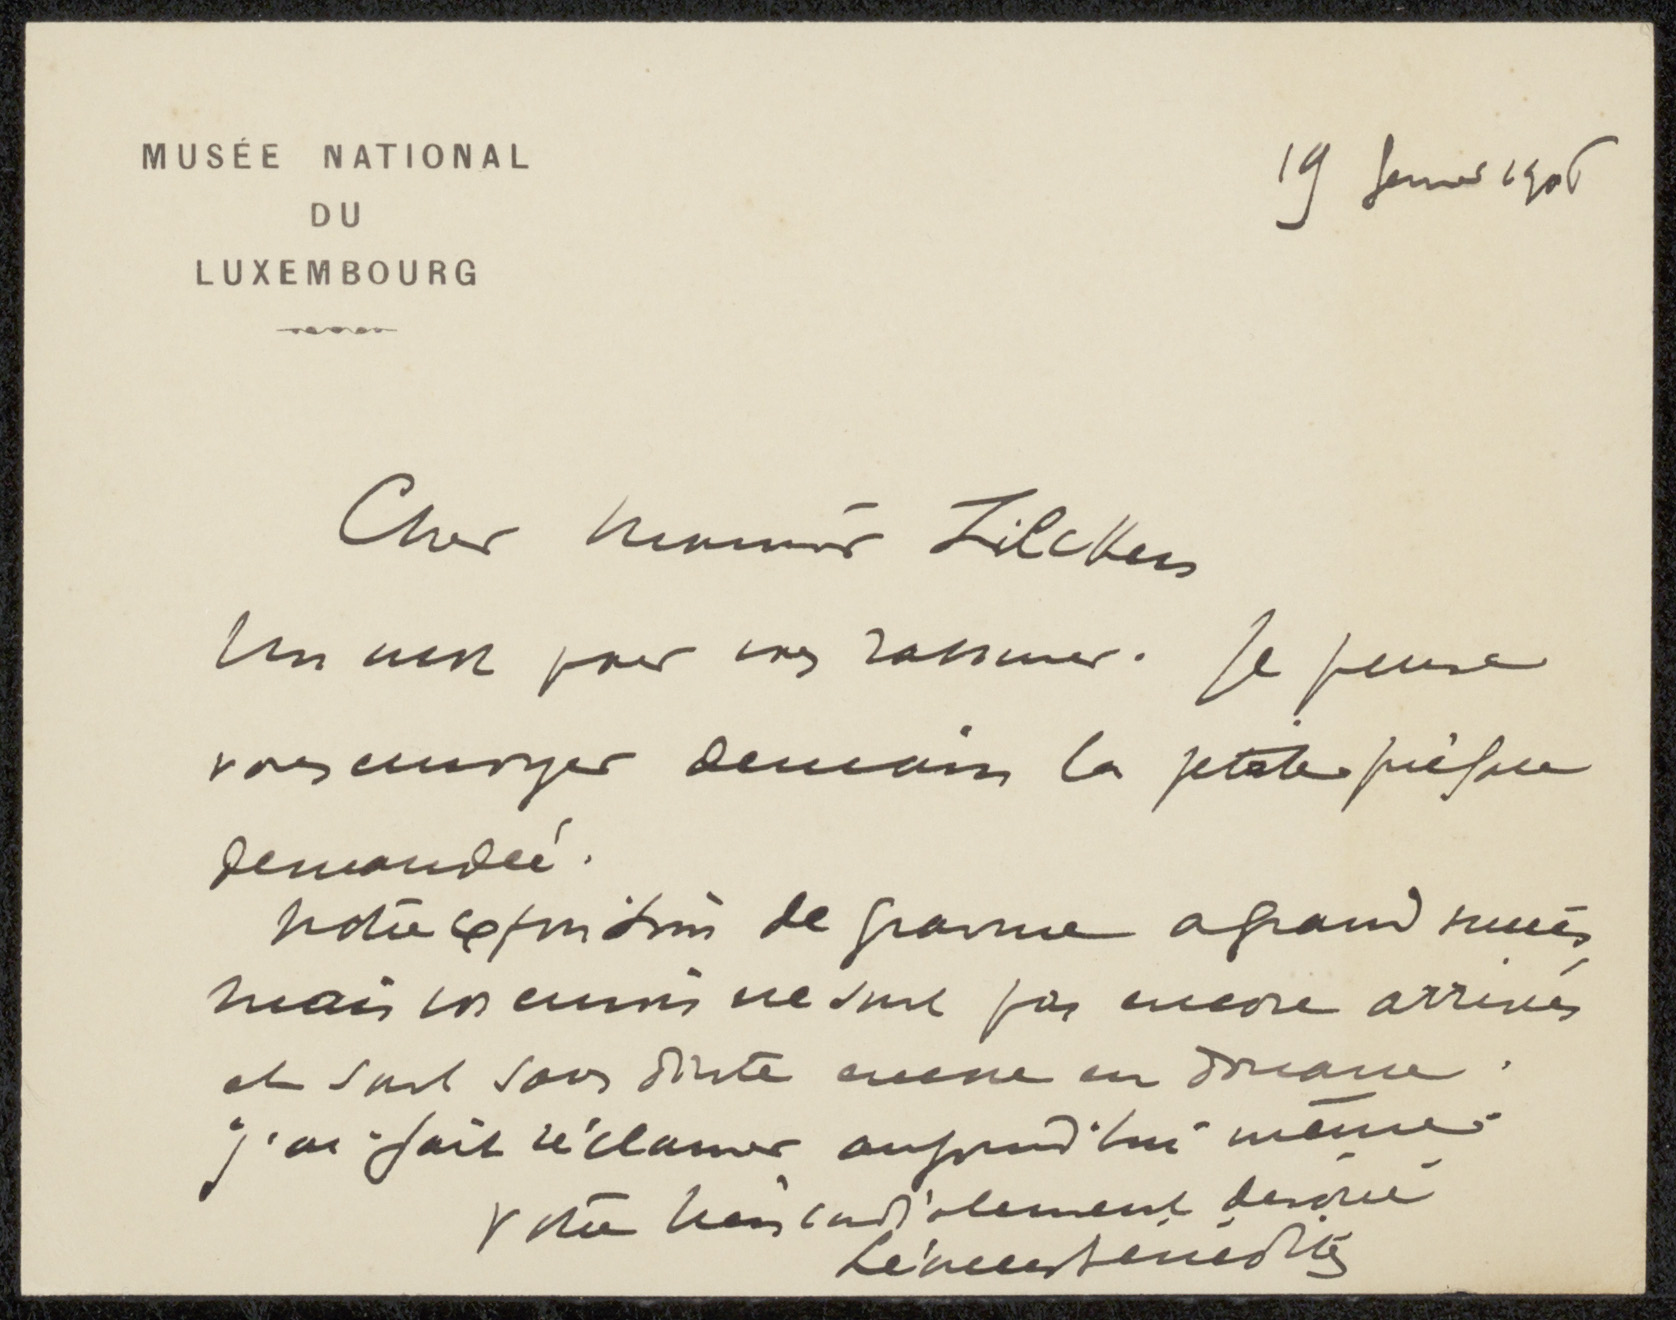 MUSÉE NATIONAL
DU
LUXEMBOURG
19 1906
Cher Monsieur Zilcken
Un mot pour vous rassurer. Je pense
vous envoyer demain la petite préface
demandée.
Notre exposition de gravure a grand succès
mais vos envois ne sont pas encore arrivés
et sont sans doute encore en douane.
J'ai fait réclamer aujourd'hui même.
Votre bien cordialement dévoué
Léonce Bénédite